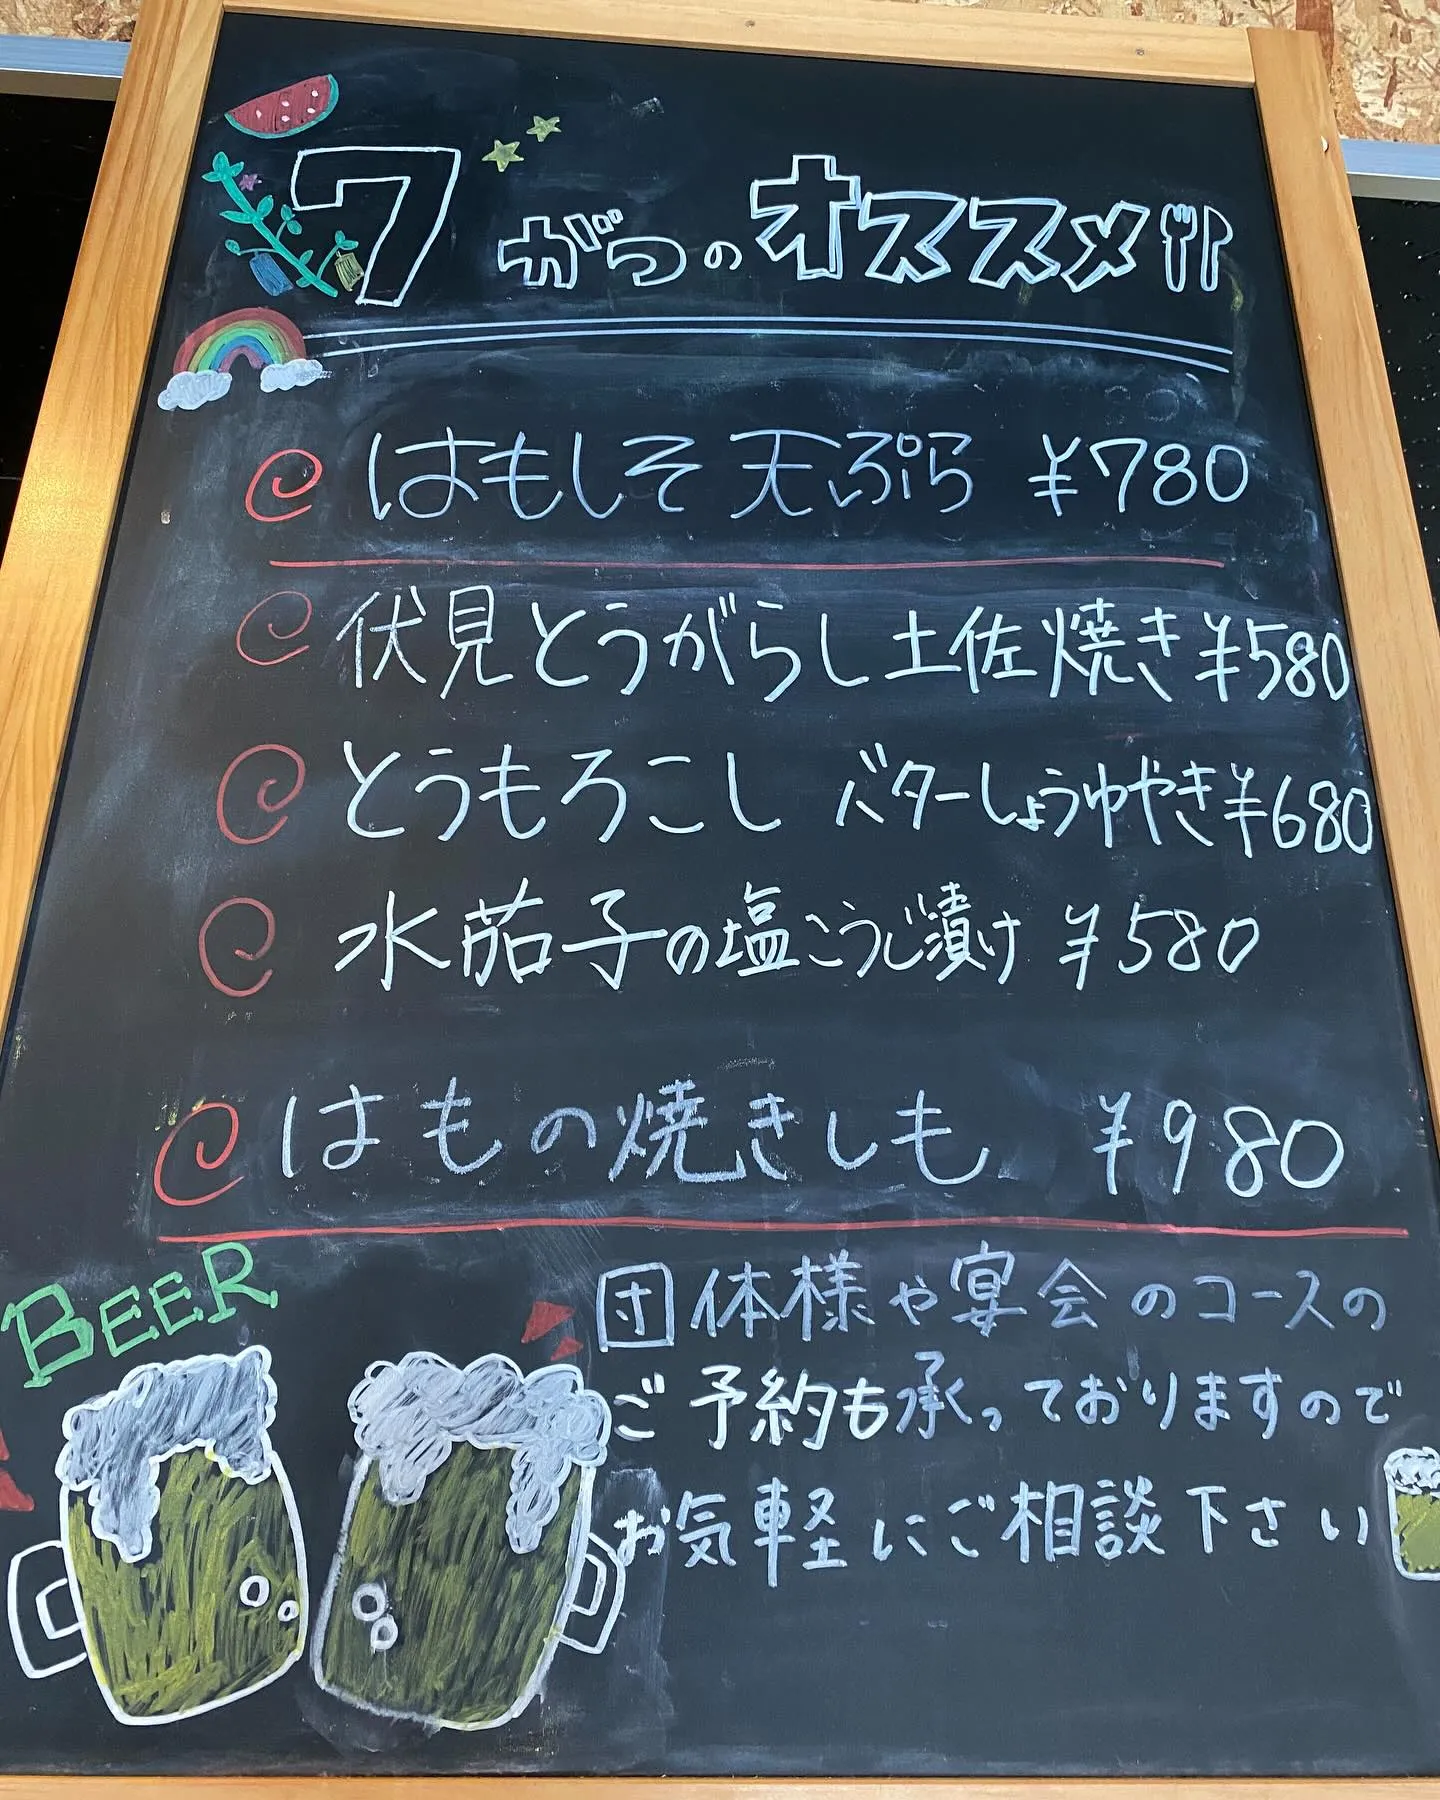 7がつのオススメ
はもしそ天ぷら ¥780
伏見とうがらし土佐焼き ¥580
とうもろこし バターしょうゆやき ¥680
水茄子の塩こうじ漬け ¥580
はもの焼きしも ¥980
BEER
団体様や宴会のコースの
ご予約も承っておりますので
お気軽にご相談下さい